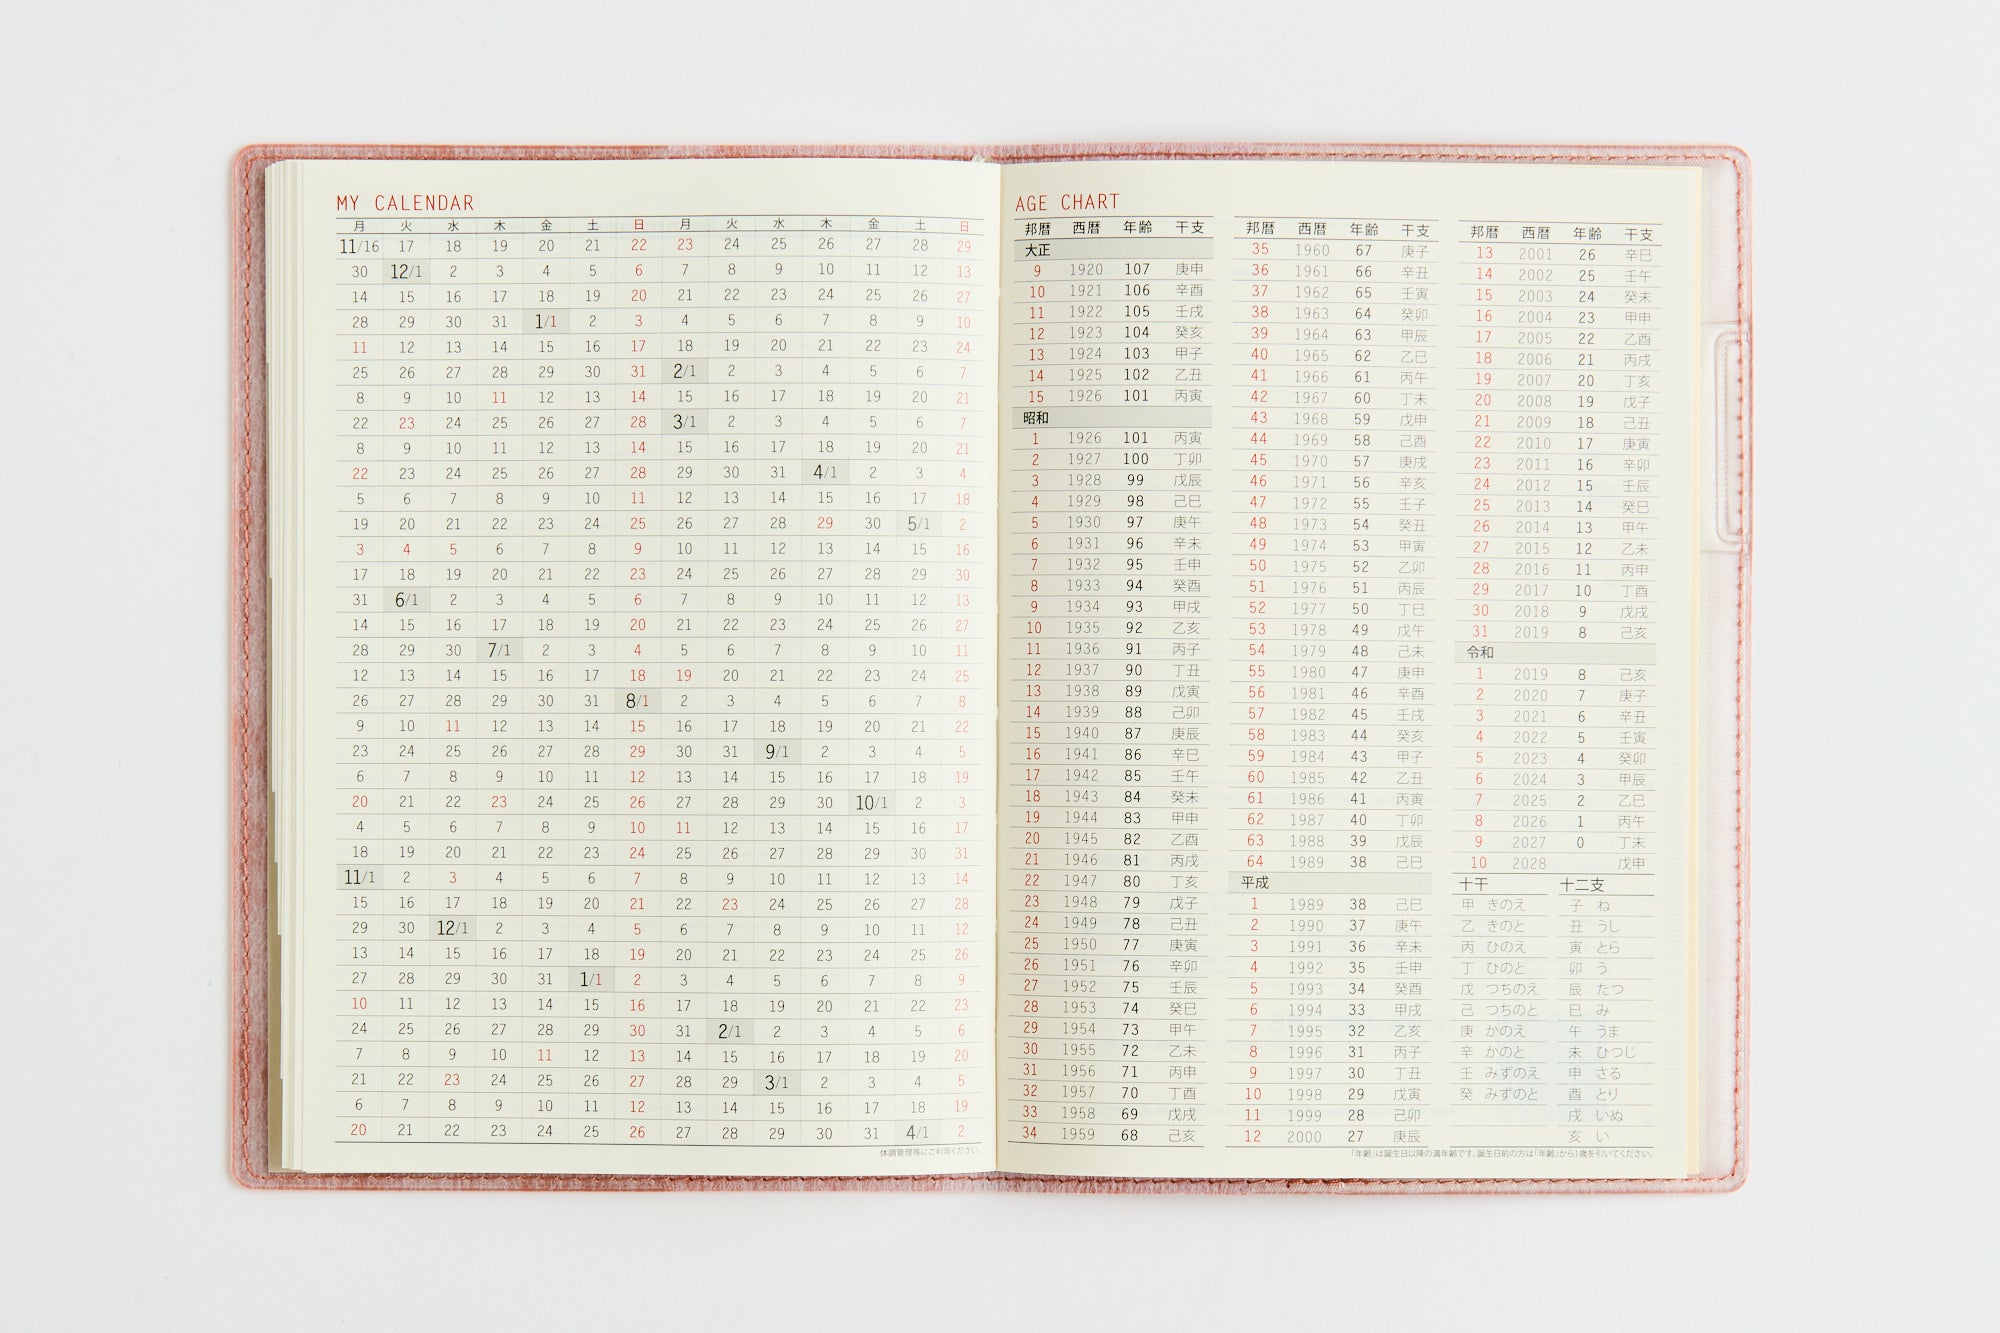 MY CALENDAR
月 火 水 木 金 土 日 月 火 水 木 金 土 日
11/16 17 18 19 20 21 22 23 24 25 26 27 28 29
30 12/1 2 3 4 5 6 7 8 9 10 11 12 13
14 15 16 17 18 19 20 21 22 23 24 25 26 27
28 29 30 31 1/1 2 3 4 5 6 7 8 9 10
11 12 13 14 15 16 17 18 19 20 21 22 23 24
25 26 27 28 29 30 31 2/1 2 3 4 5 6 7
8 9 10 11 12 13 14 15 16 17 18 19 20 21
22 23 24 25 26 27 28 3/1 2 3 4 5 6 7
8 9 10 11 12 13 14 15 16 17 18 19 20 21
22 23 24 25 26 27 28 29 30 31 4/1 2 3 4
5 6 7 8 9 10 11 12 13 14 15 16 17 18
19 20 21 22 23 24 25 26 27 28 29 30 5/1 2
3 4 5 6 7 8 9 10 11 12 13 14 15 16
17 18 19 20 21 22 23 24 25 26 27 28 29 30
31 6/1 2 3 4 5 6 7 8 9 10 11 12 13
14 15 16 17 18 19 20 21 22 23 24 25 26 27
28 29 30 7/1 2 3 4 5 6 7 8 9 10 11
12 13 14 15 16 17 18 19 20 21 22 23 24 25
26 27 28 29 30 31 8/1 2 3 4 5 6 7 8
9 10 11 12 13 14 15 16 17 18 19 20 21 22
23 24 25 26 27 28 29 30 31 9/1 2 3 4 5
6 7 8 9 10 11 12 13 14 15 16 17 18 19
20 21 22 23 24 25 26 27 28 29 30 10/1 2 3
4 5 6 7 8 9 10 11 12 13 14 15 16 17
18 19 20 21 22 23 24 25 26 27 28 29 30 31
11/1 2 3 4 5 6 7 8 9 10 11 12 13 14
15 16 17 18 19 20 21 22 23 24 25 26 27 28
29 30 12/1 2 3 4 5 6 7 8 9 10 11 12
13 14 15 16 17 18 19 20 21 22 23 24 25 26
27 28 29 30 31 1/1 2 3 4 5 6 7 8 9
10 11 12 13 14 15 16 17 18 19 20 21 22 23
24 25 26 27 28 29 30 31 2/1 2 3 4 5 6
7 8 9 10 11 12 13 14 15 16 17 18 19 20
21 22 23 24 25 26 27 28 29 3/1 2 3 4 5
6 7 8 9 10 11 12 13 14 15 16 17 18 19
20 21 22 23 24 25 26 27 28 29 30 31 4/1 2
体調管理等にご利用ください。
AGE CHART
邦暦 西暦 年齢 干支
大正
9 1920 107 庚申
10 1921 106 辛酉
11 1922 105 壬戌
12 1923 104 癸亥
13 1924 103 甲子
14 1925 102 乙丑
15 1926 101 丙寅
昭和
1 1926 101 丙寅
2 1927 100 丁卯
3 1928 99 戊辰
4 1929 98 己巳
5 1930 97 庚午
6 1931 96 辛未
7 1932 95 壬申
8 1933 94 癸酉
9 1934 93 甲戌
10 1935 92 乙亥
11 1936 91 丙子
12 1937 90 丁丑
13 1938 89 戊寅
14 1939 88 己卯
15 1940 87 庚辰
16 1941 86 辛巳
17 1942 85 壬午
18 1943 84 癸未
19 1944 83 甲申
20 1945 82 乙酉
21 1946 81 丙戌
22 1947 80 丁亥
23 1948 79 戊子
24 1949 78 己丑
25 1950 77 庚寅
26 1951 76 辛卯
27 1952 75 壬辰
28 1953 74 癸巳
29 1954 73 甲午
30 1955 72 乙未
31 1956 71 丙申
32 1957 70 丁酉
33 1958 69 戊戌
34 1959 68 己亥
邦暦 西暦 年齢 干支
35 1960 67 庚子
36 1961 66 辛丑
37 1962 65 壬寅
38 1963 64 癸卯
39 1964 63 甲辰
40 1965 62 乙巳
41 1966 61 丙午
42 1967 60 丁未
43 1968 59 戊申
44 1969 58 己酉
45 1970 57 庚戌
46 1971 56 辛亥
47 1972 55 壬子
48 1973 54 癸丑
49 1974 53 甲寅
50 1975 52 乙卯
51 1976 51 丙辰
52 1977 50 丁巳
53 1978 49 戊午
54 1979 48 己未
55 1980 47 庚申
56 1981 46 辛酉
57 1982 45 壬戌
58 1983 44 癸亥
59 1984 43 甲子
60 1985 42 乙丑
61 1986 41 丙寅
62 1987 40 丁卯
63 1988 39 戊辰
64 1989 38 己巳
平成
1 1989 38 己巳
2 1990 37 庚午
3 1991 36 辛未
4 1992 35 壬申
5 1993 34 癸酉
6 1994 33 甲戌
7 1995 32 乙亥
8 1996 31 丙子
9 1997 30 丁丑
10 1998 29 戊寅
11 1999 28 己卯
12 2000 27 庚辰
邦暦 西暦 年齢 干支
13 2001 26 辛巳
14 2002 25 壬午
15 2003 24 癸未
16 2004 23 甲申
17 2005 22 乙酉
18 2006 21 丙戌
19 2007 20 丁亥
20 2008 19 戊子
21 2009 18 己丑
22 2010 17 庚寅
23 2011 16 辛卯
24 2012 15 壬辰
25 2013 14 癸巳
26 2014 13 甲午
27 2015 12 乙未
28 2016 11 丙申
29 2017 10 丁酉
30 2018 9 戊戌
31 2019 8 己亥
令和
1 2019 8 己亥
2 2020 7 庚子
3 2021 6 辛丑
4 2022 5 壬寅
5 2023 4 癸卯
6 2024 3 甲辰
7 2025 2 乙巳
8 2026 1 丙午
9 2027 0 丁未
10 2028 戊申
十干 十二支
甲 きのえ 子 ね
乙 きのと 丑 うし
丙 ひのえ 寅 とら
丁 ひのと 卯 う
戊 つちのえ 辰 たつ
己 つちのと 巳 み
庚 かのえ 午 うま
辛 かのと 未 ひつじ
壬 みずのえ 申 さる
癸 みずのと 酉 とり
戌 いぬ
亥 い
「年齢」は誕生日以降の満年齢です。誕生日前の方は「年齢」から1歳を引いてください。